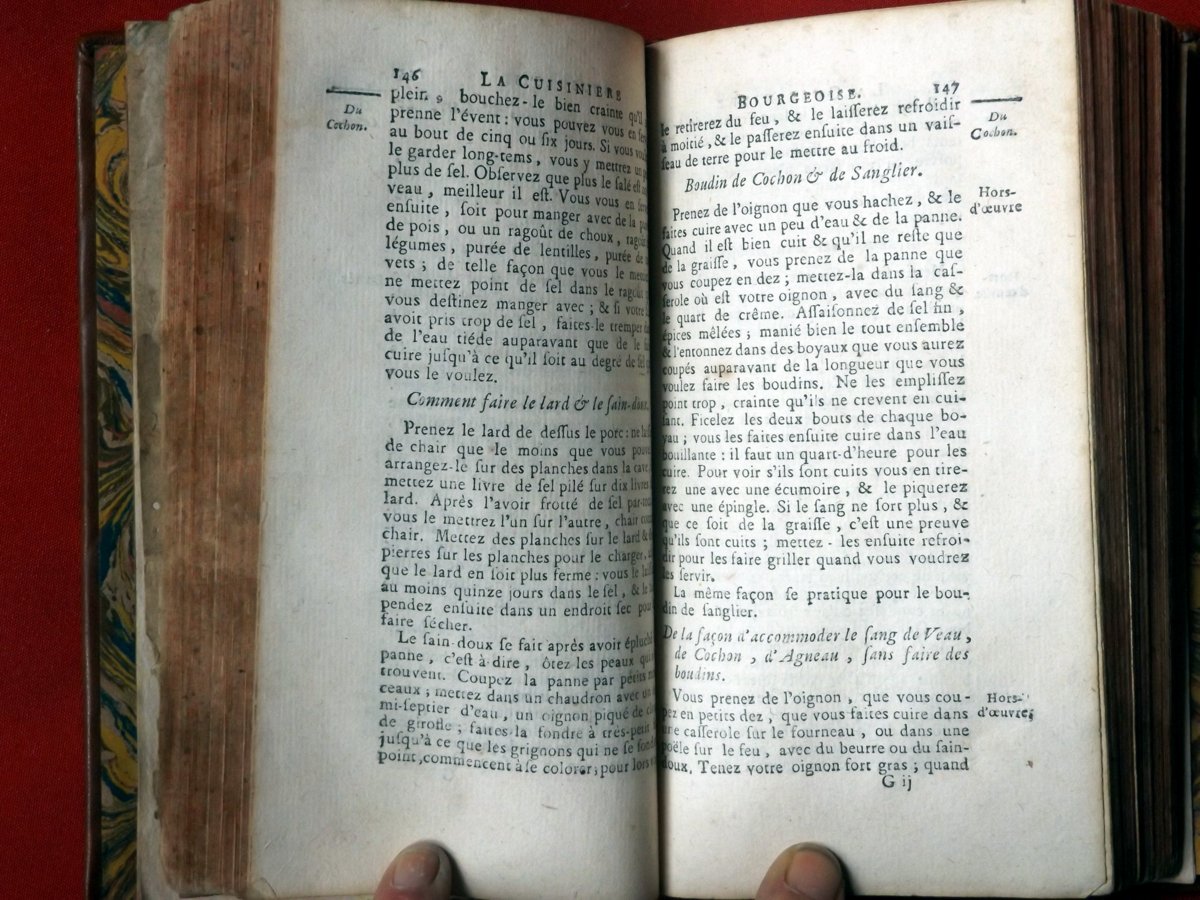 146 LA CUISINIERE
Du
Cochon.
plein, bouchez-le bien crainte qu'il
prenne l'évent : vous pouvez vous en
au bout de cinq ou ſix jours. Si vous
le garder long-tems, vous y mettrez un
plus de ſel. Obſervez que plus le ſalé eſt
veau, meilleur il eſt. Vous vous en
enſuite, ſoit pour manger avec de la
de pois, ou un ragoût de choux,
légumes, purée de lentilles, purée de
vets ; de telle façon que vous le
ne mettez point de ſel dans le ragoût
vous deſtinez manger avec ; & ſi votre
avoit pris trop de ſel, faites-le tremper
de l'eau tiéde auparavant que de le
cuire juſqu'à ce qu'il ſoit au degré de ſel
vous le voulez.
Comment faire le lard & le ſain-doux.
Prenez le lard de deſſus le porc : ne
de chair que le moins que vous
arrangez-le ſur des planches dans la cave,
mettez une livre de ſel pilé ſur dix livres
lard. Après l'avoir frotté de ſel par-tout
vous le mettrez l'un ſur l'autre, chair
chair. Mettez des planches ſur le lard &
pierres ſur les planches pour le charger,
que le lard en ſoit plus ferme : vous le
au moins quinze jours dans le ſel, & le
pendez enſuite dans un endroit ſec pour
faire ſécher.
Le ſain-doux ſe fait après avoir épluché
panne, c'eſt à dire, ôtez les peaux
trouvent. Coupez la panne par petits
ceaux ; mettez dans un chaudron avec un
mi-ſeptier d'eau, un oignon piqué de
de girofle ; faites-la fondre à très-petit
juſqu'à ce que les grignons qui ne ſe
point, commencent à ſe colorer ; pour lors
BOURGEOISE. 147
Du
Cochon.
le retirerez du feu, & le laiſſerez refroidir
à moitié, & le paſſerez enſuite dans un vaiſ-
ſeau de terre pour le mettre au froid.
Boudin de Cochon & de Sanglier.
Hors-
d'œuvre
Prenez de l'oignon que vous hachez, & le
faites cuire avec un peu d'eau & de la panne.
Quand il eſt bien cuit & qu'il ne reſte que
de la graiſſe, vous prenez de la panne que
vous coupez en dez ; mettez-la dans la caſ-
ſerole où eſt votre oignon, avec du ſang &
le quart de crême. Aſſaiſonnez de ſel fin,
épices mêlées ; manié bien le tout enſemble
& l'entonnez dans des boyaux que vous aurez
coupés auparavant de la longueur que vous
voulez faire les boudins. Ne les empliſſez
point trop, crainte qu'ils ne crevent en cui-
ſant. Ficelez les deux bouts de chaque bo-
yau ; vous les faites enſuite cuire dans l'eau
bouillante : il faut un quart-d'heure pour les
cuire. Pour voir s'ils ſont cuits vous en tire-
rez une avec une écumoire, & le piquerez
avec une épingle. Si le ſang ne ſort plus, &
que ce ſoit de la graiſſe, c'eſt une preuve
qu'ils ſont cuits ; mettez-les enſuite refroi-
dir pour les faire griller quand vous voudrez
les ſervir.
La même façon ſe pratique pour le bou-
din de ſanglier.
De la façon d'accommoder le ſang de Veau,
de Cochon, d'Agneau, ſans faire des
boudins.
Hors-
d'œuvre;
Vous prenez de l'oignon, que vous cou-
pez en petits dez, que vous faites cuire dans
une caſſerole ſur le fourneau, ou dans une
poële ſur le feu, avec du beurre ou du ſain-
doux. Tenez votre oignon fort gras ; quand
G ij